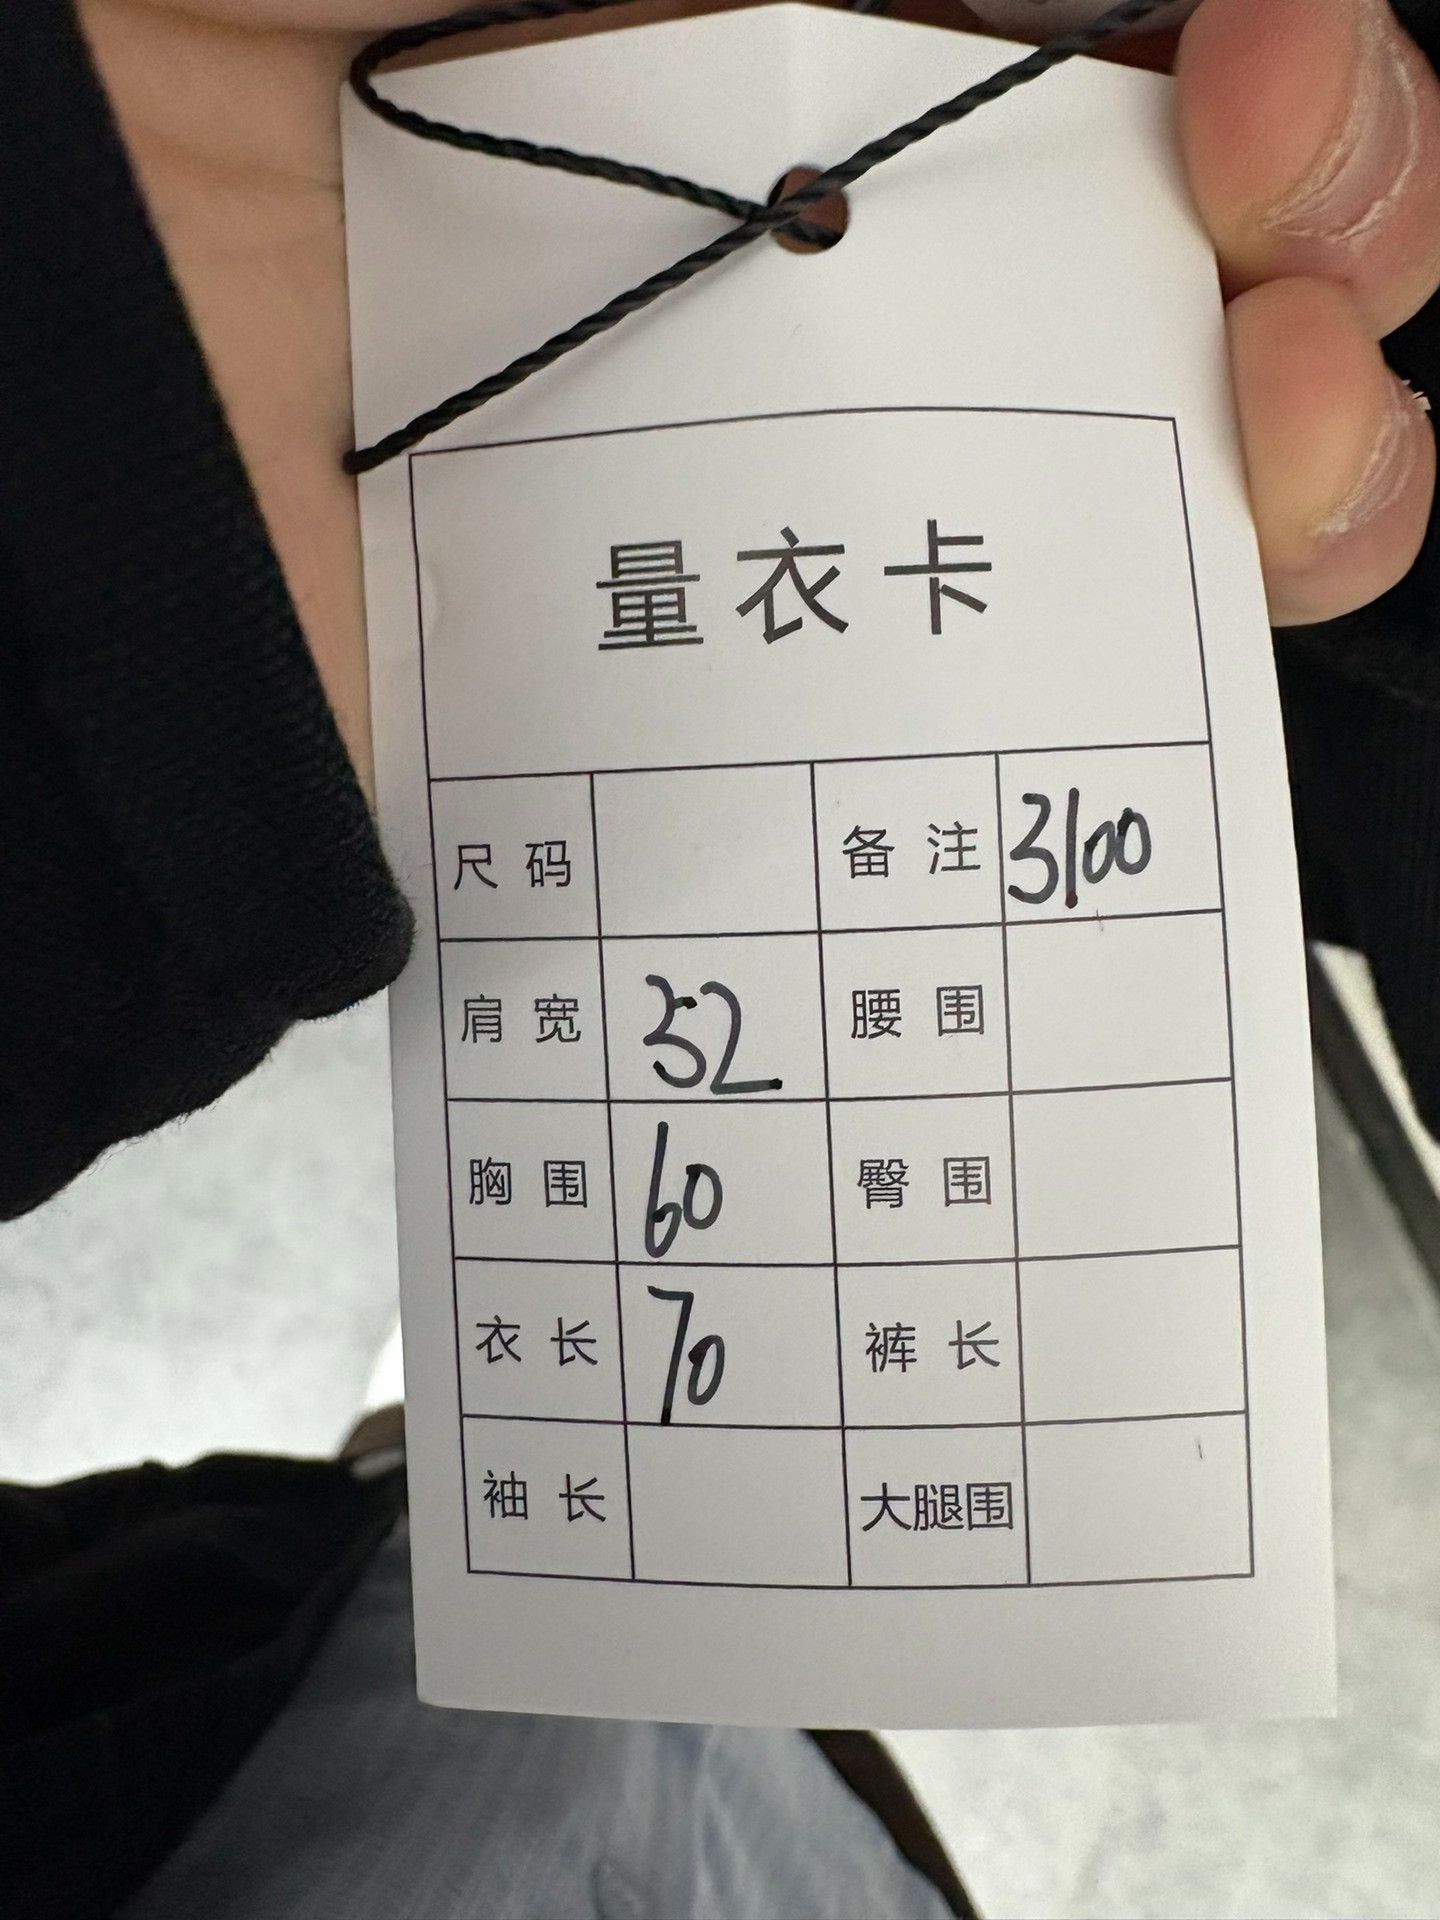 量衣卡
尺码 备注 3100
肩宽 52 腰围
胸围 60 臀围
衣长 70 裤长
袖长 大腿围